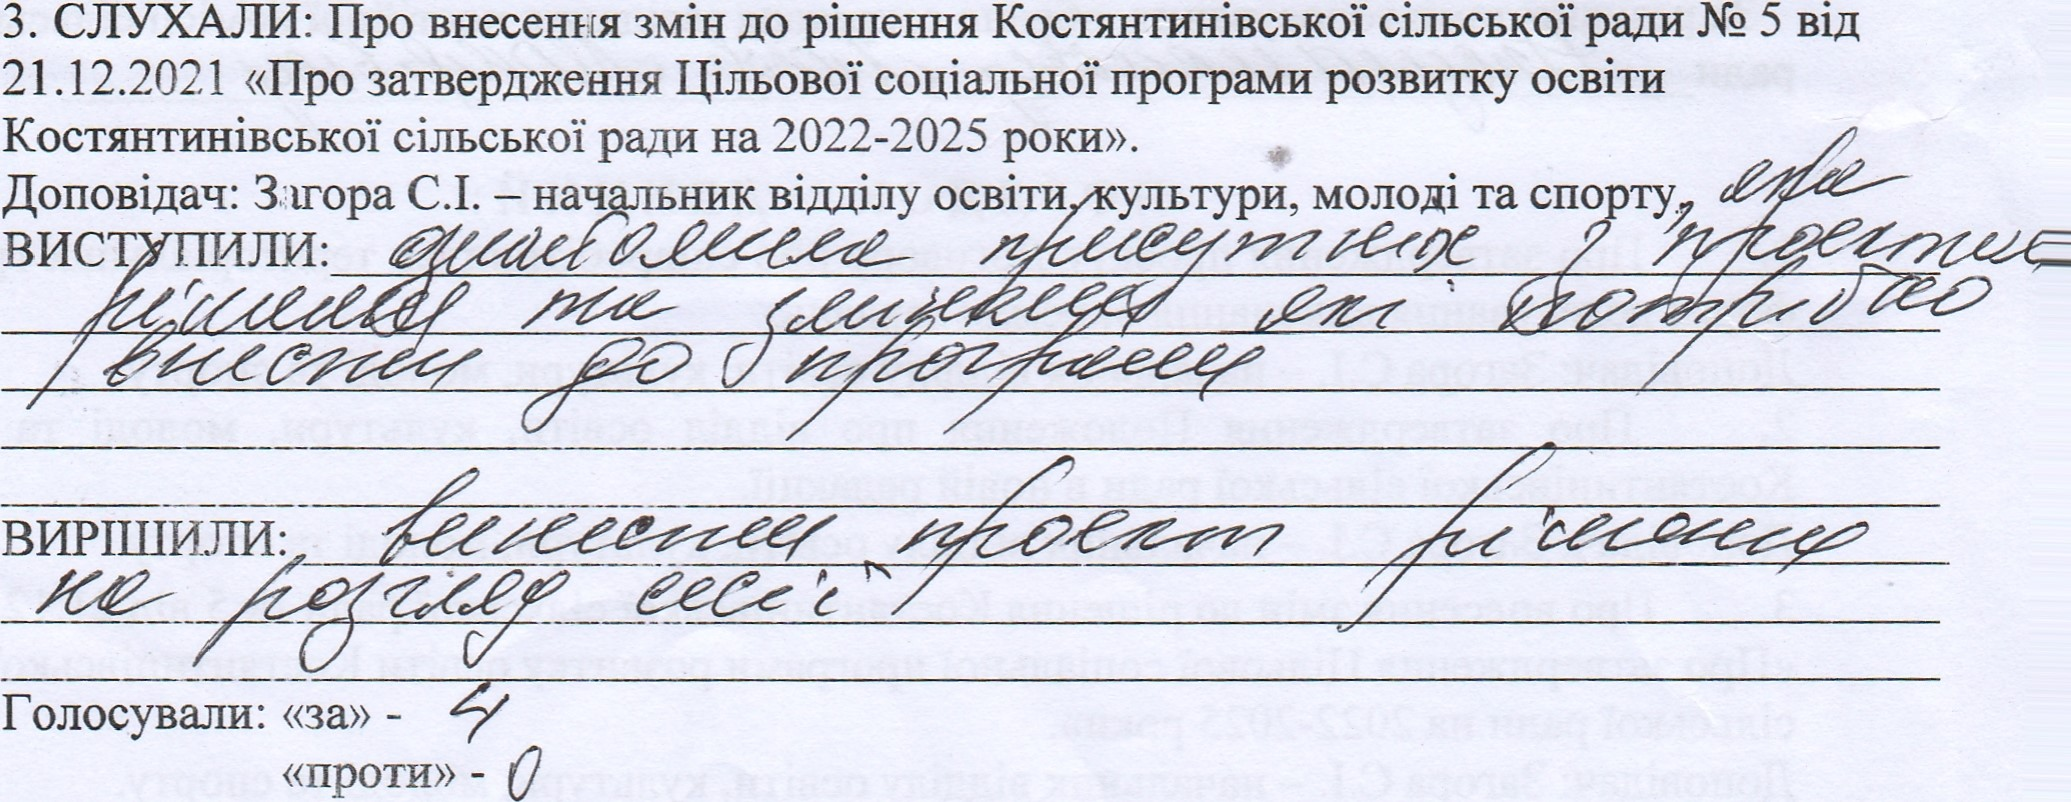 3. СЛУХАЛИ: Про внесення змін до рішення Костянтинівської сільської ради № 5 від
21.12.2021 «Про затвердження Цільової соціальної програми розвитку освіти
Костянтинівської сільської ради на 2022-2025 роки».
Доповідач: Загора С.І. – начальник відділу освіти, культури, молоді та спорту, яка
ВИСТУПИЛИ: ознайомила присутніх з проектом
рішення та змінами які потрібно
внести до програми
ВИРІШИЛИ: винести проект рішення
на розгляд сесії
Голосували: «за» - 4
«проти» - 0